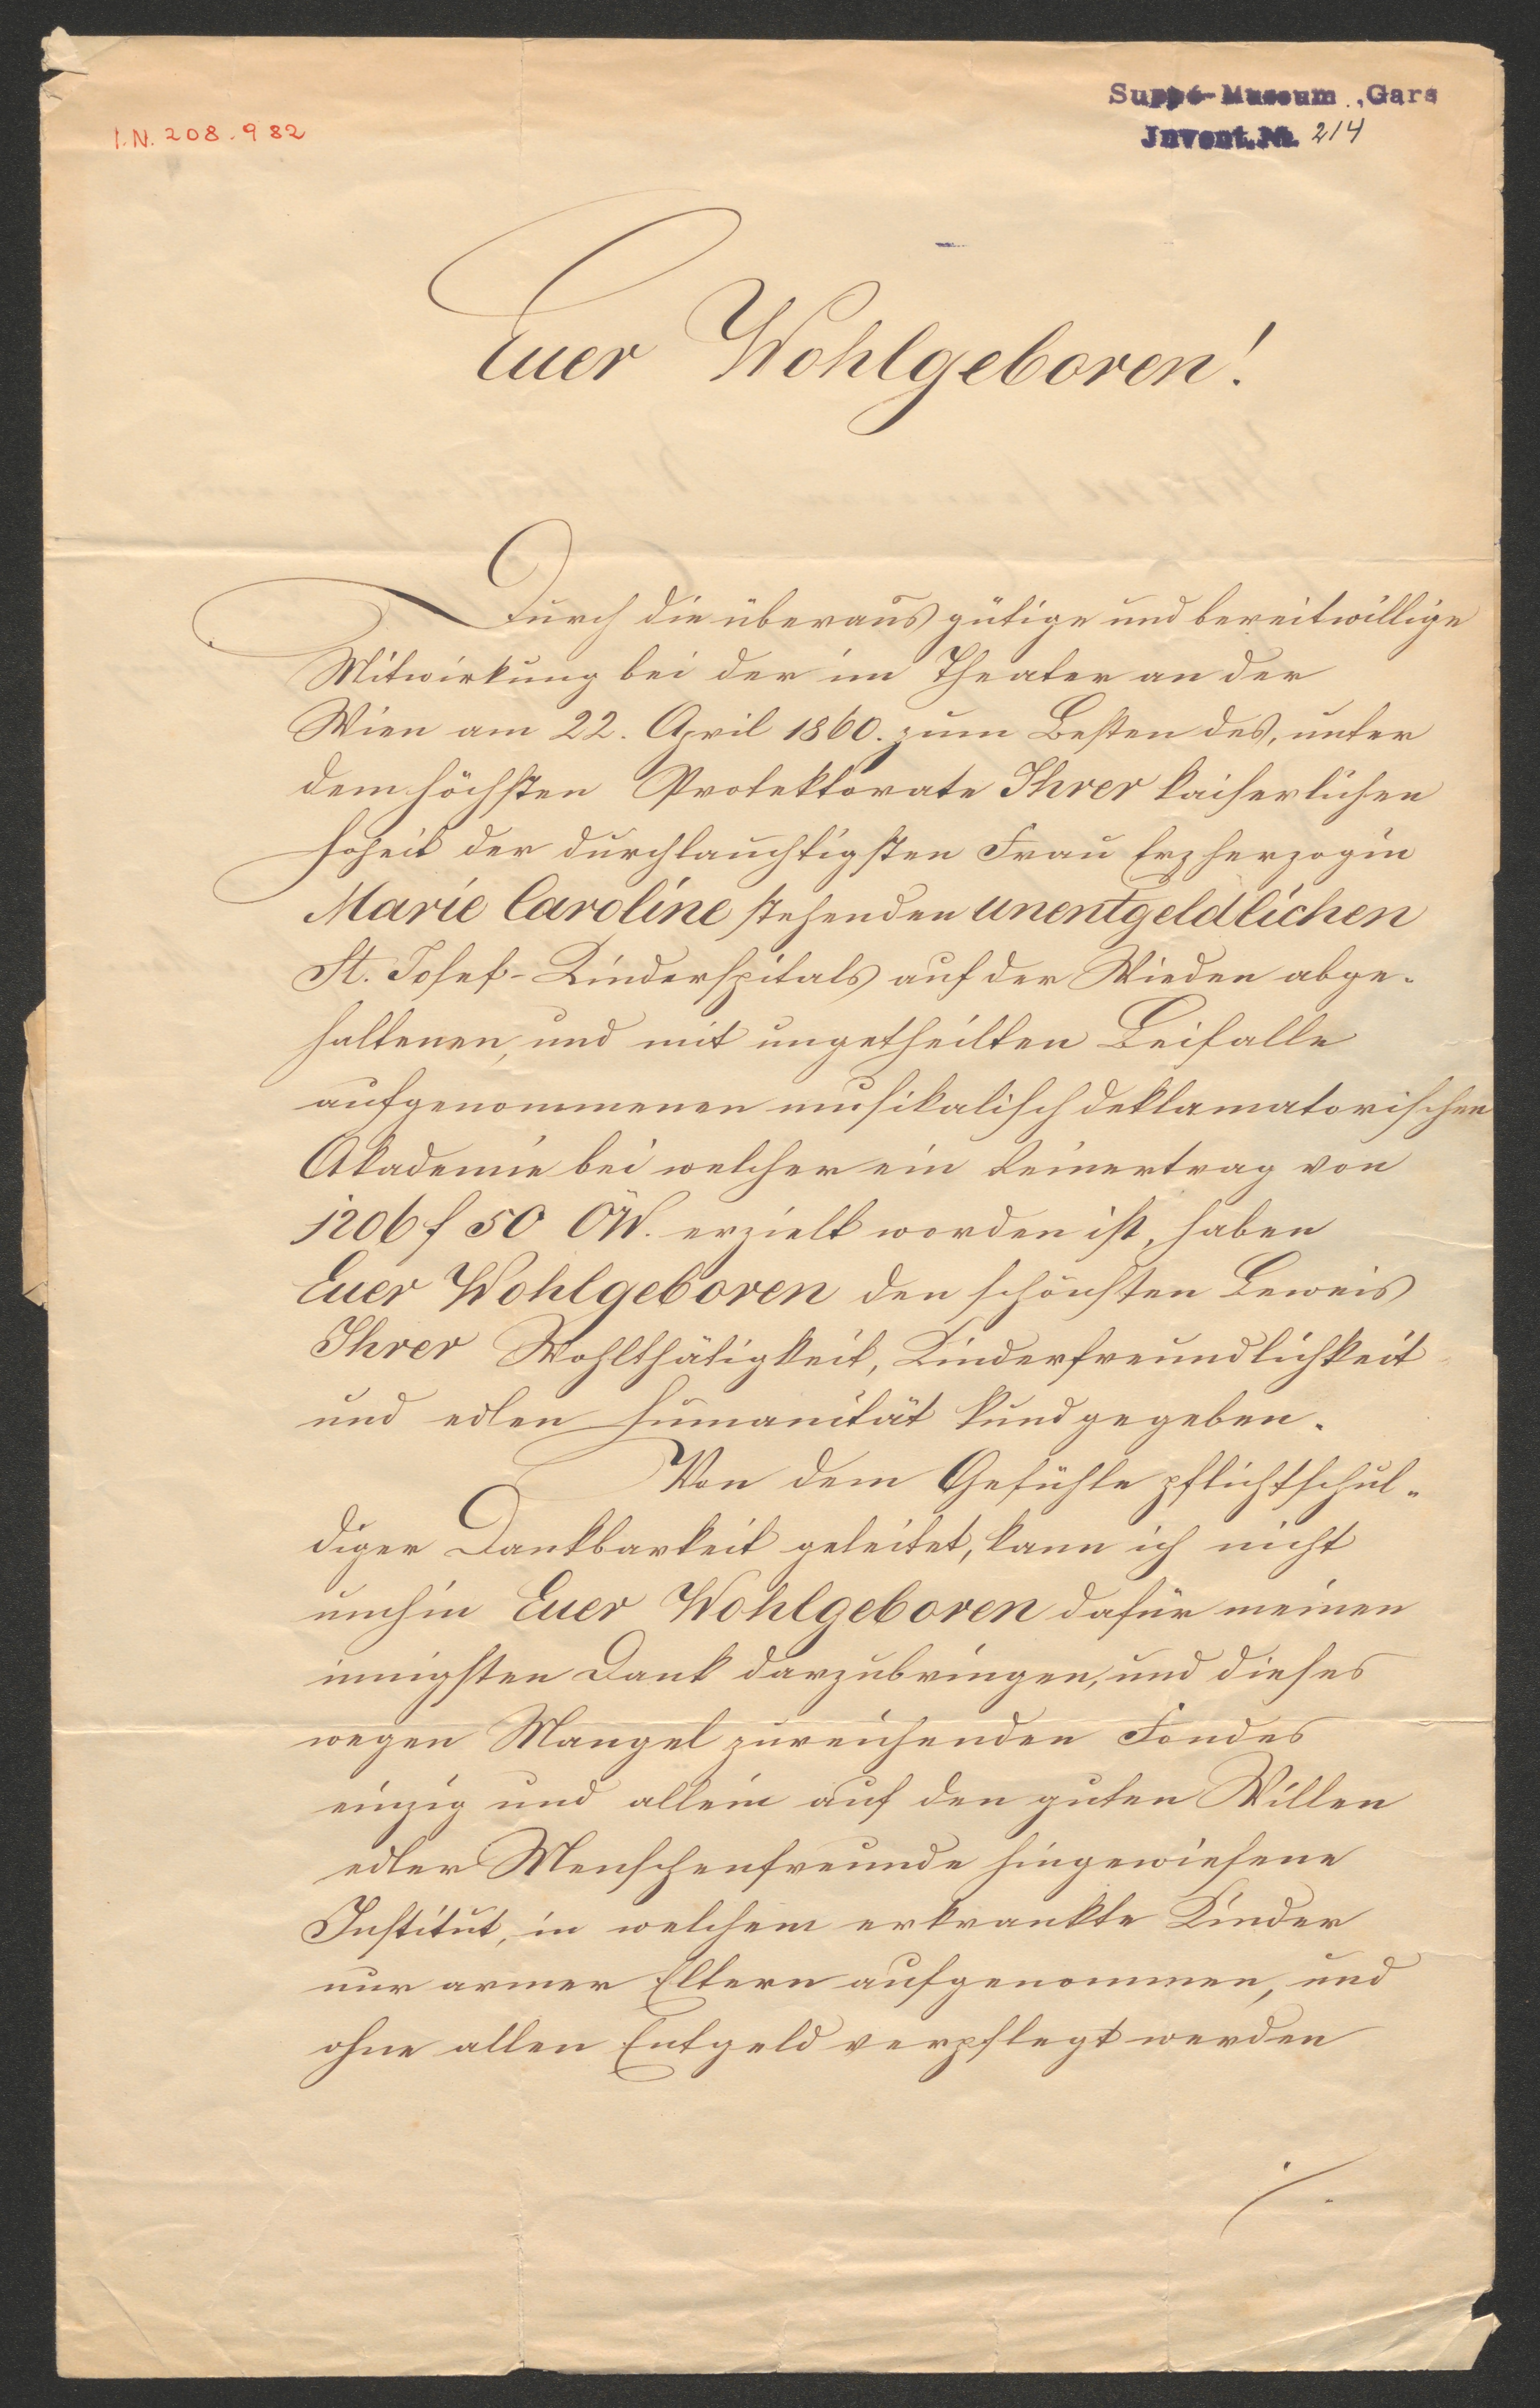 I.N. 208.982
Suppé-Museum, Gars
Invent.Nr. 214
Euer Wohlgeboren!
Durch die überaus gütige und bereitwillige
Mitwirkung bei der im Theater an der
Wien am 22. April 1860. zum Besten des, unter
dem höchsten Protektorate Ihrer kaiserlichen
Hoheit der durchlauchtigsten Frau Erzherzogin
Marie Caroline stehenden unentgeldlichen
St. Josef-Kinderspitals auf der Wieden abge-
haltenen, und mit ungetheilten Beifalle
aufgenommenen musikalisch deklamatorischen
Akademie bei welcher ein Reinertrag von
1206 f 50 ÖW. erzielt worden ist, haben
Euer Wohlgeboren den schönsten Beweis
Ihrer Wohlthätigkeit, Kinderfreundlichkeit
und edlen Humanität kundgegeben.
Von dem Gefühle pflichtschul-
diger Dankbarkeit geleitet, kann ich nicht
umhin Euer Wohlgeboren dafür meinen
innigsten Dank darzubringen, und dieses
wegen Mangel zureichenden Fondes
einzig und allein auf den guten Willen
edler Menschenfreunde hingewiesene
Institut, in welchem erkrankte Kinder
nur armer Eltern aufgenommen, und
ohne allen Entgeld verpflegt werden
./.